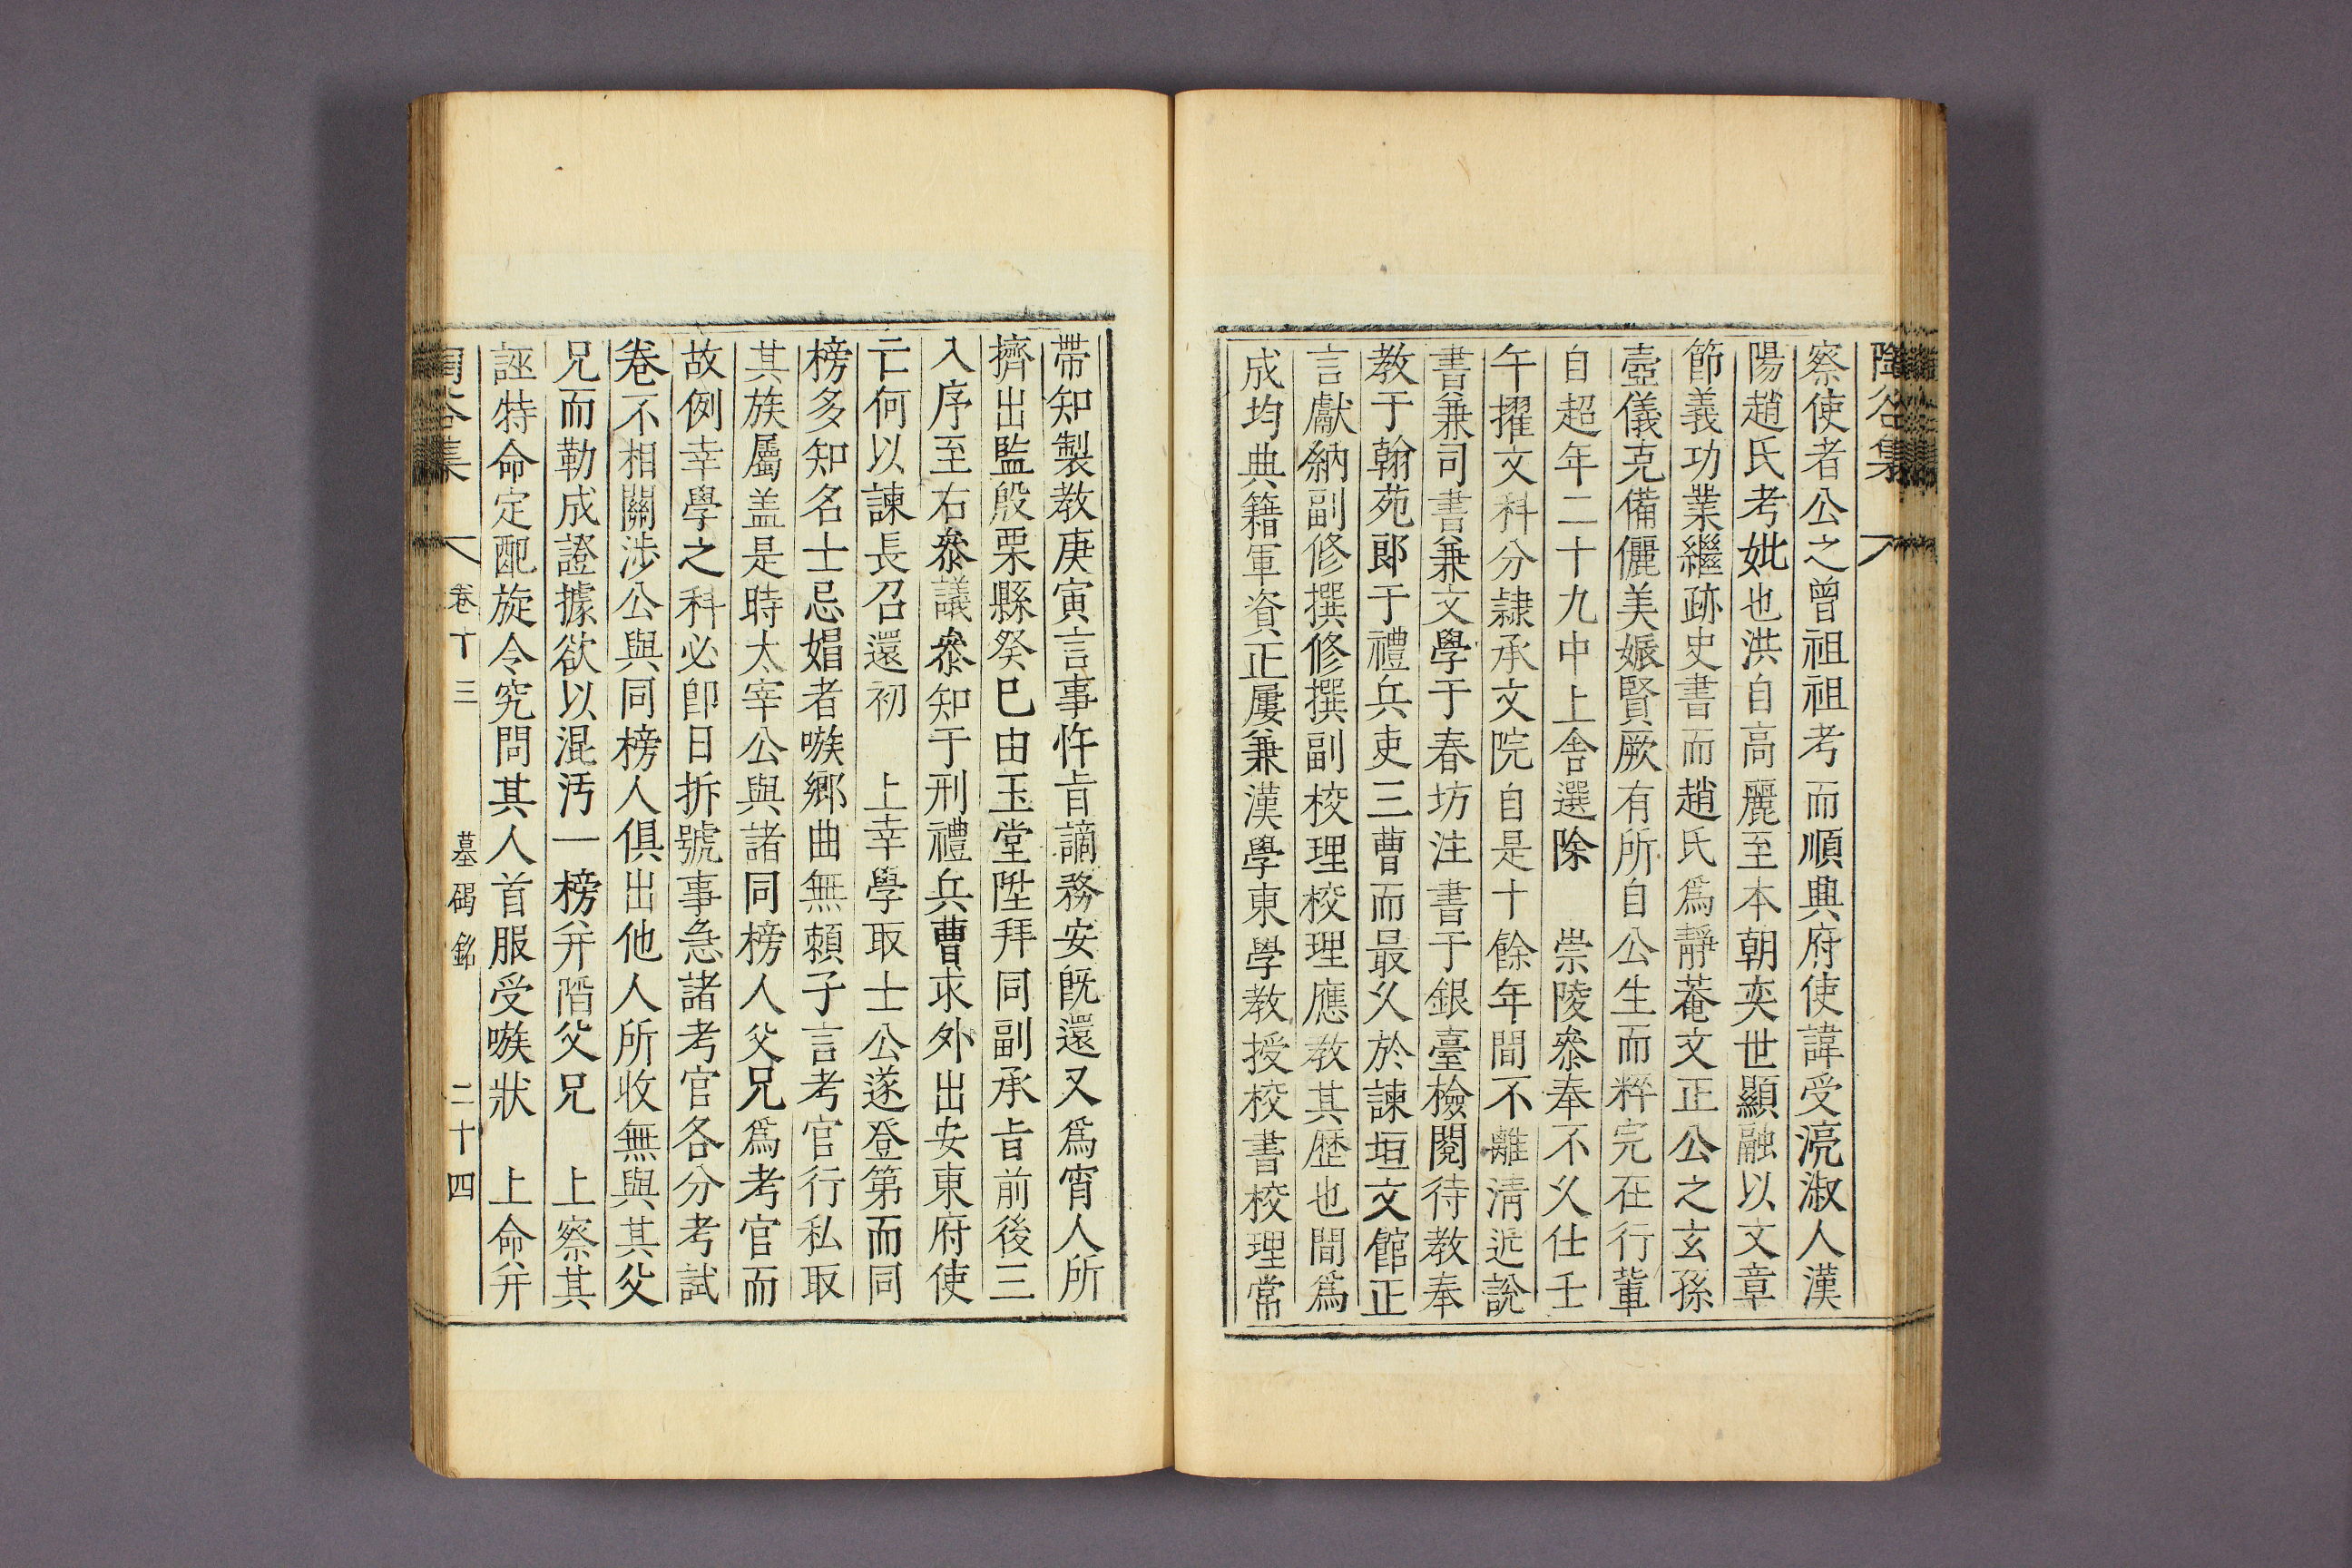 陶谷集
察使者公之曾祖祖考而順興府使諱受濂淑人漢
陽趙氏考妣也洪自高麗至本朝奕世顯融以文章
節義功業繼跡史書而趙氏爲靜菴文正公之玄孫
壼儀克備儷美娠賢厥有所自公生而粹完在行輩
自超年二十九中上舍選除　崇陵參奉不久仕壬
午擢文科分隷承文院自是十餘年間不離淸近說
書兼司書兼文學于春坊注書于銀臺檢閱待敎奉
敎于翰苑郎于禮兵吏三曹而最久於諫垣玉館正
言獻納副修撰修撰副校理校理應敎其歷也間爲
成均典籍軍資正屢兼漢學東學敎授校書校理常
帶知製敎庚寅言事忤旨謫務安旣還又爲宵人所
擠出監殷栗縣癸巳由玉堂陞拜同副承旨前後三
入序至右參議參知于刑禮兵曹求外出安東府使
亡何以諫長召還初　上幸學取士公遂登第而同
榜多知名士忌娼者嗾鄕曲無賴子言考官行私取
其族屬盖是時太宰公與諸同榜人父兄爲考官而
故例幸學之科必卽日拆號事急諸考官各分考試
卷不相關涉公與同榜人俱出他人所收無與其父
兄而勒成證據欲以混汚一榜幷階父兄　上察其
誣特命定配旋令究問其人首服受嗾狀　上命幷
陶谷集　卷十三　墓碣銘　二十四